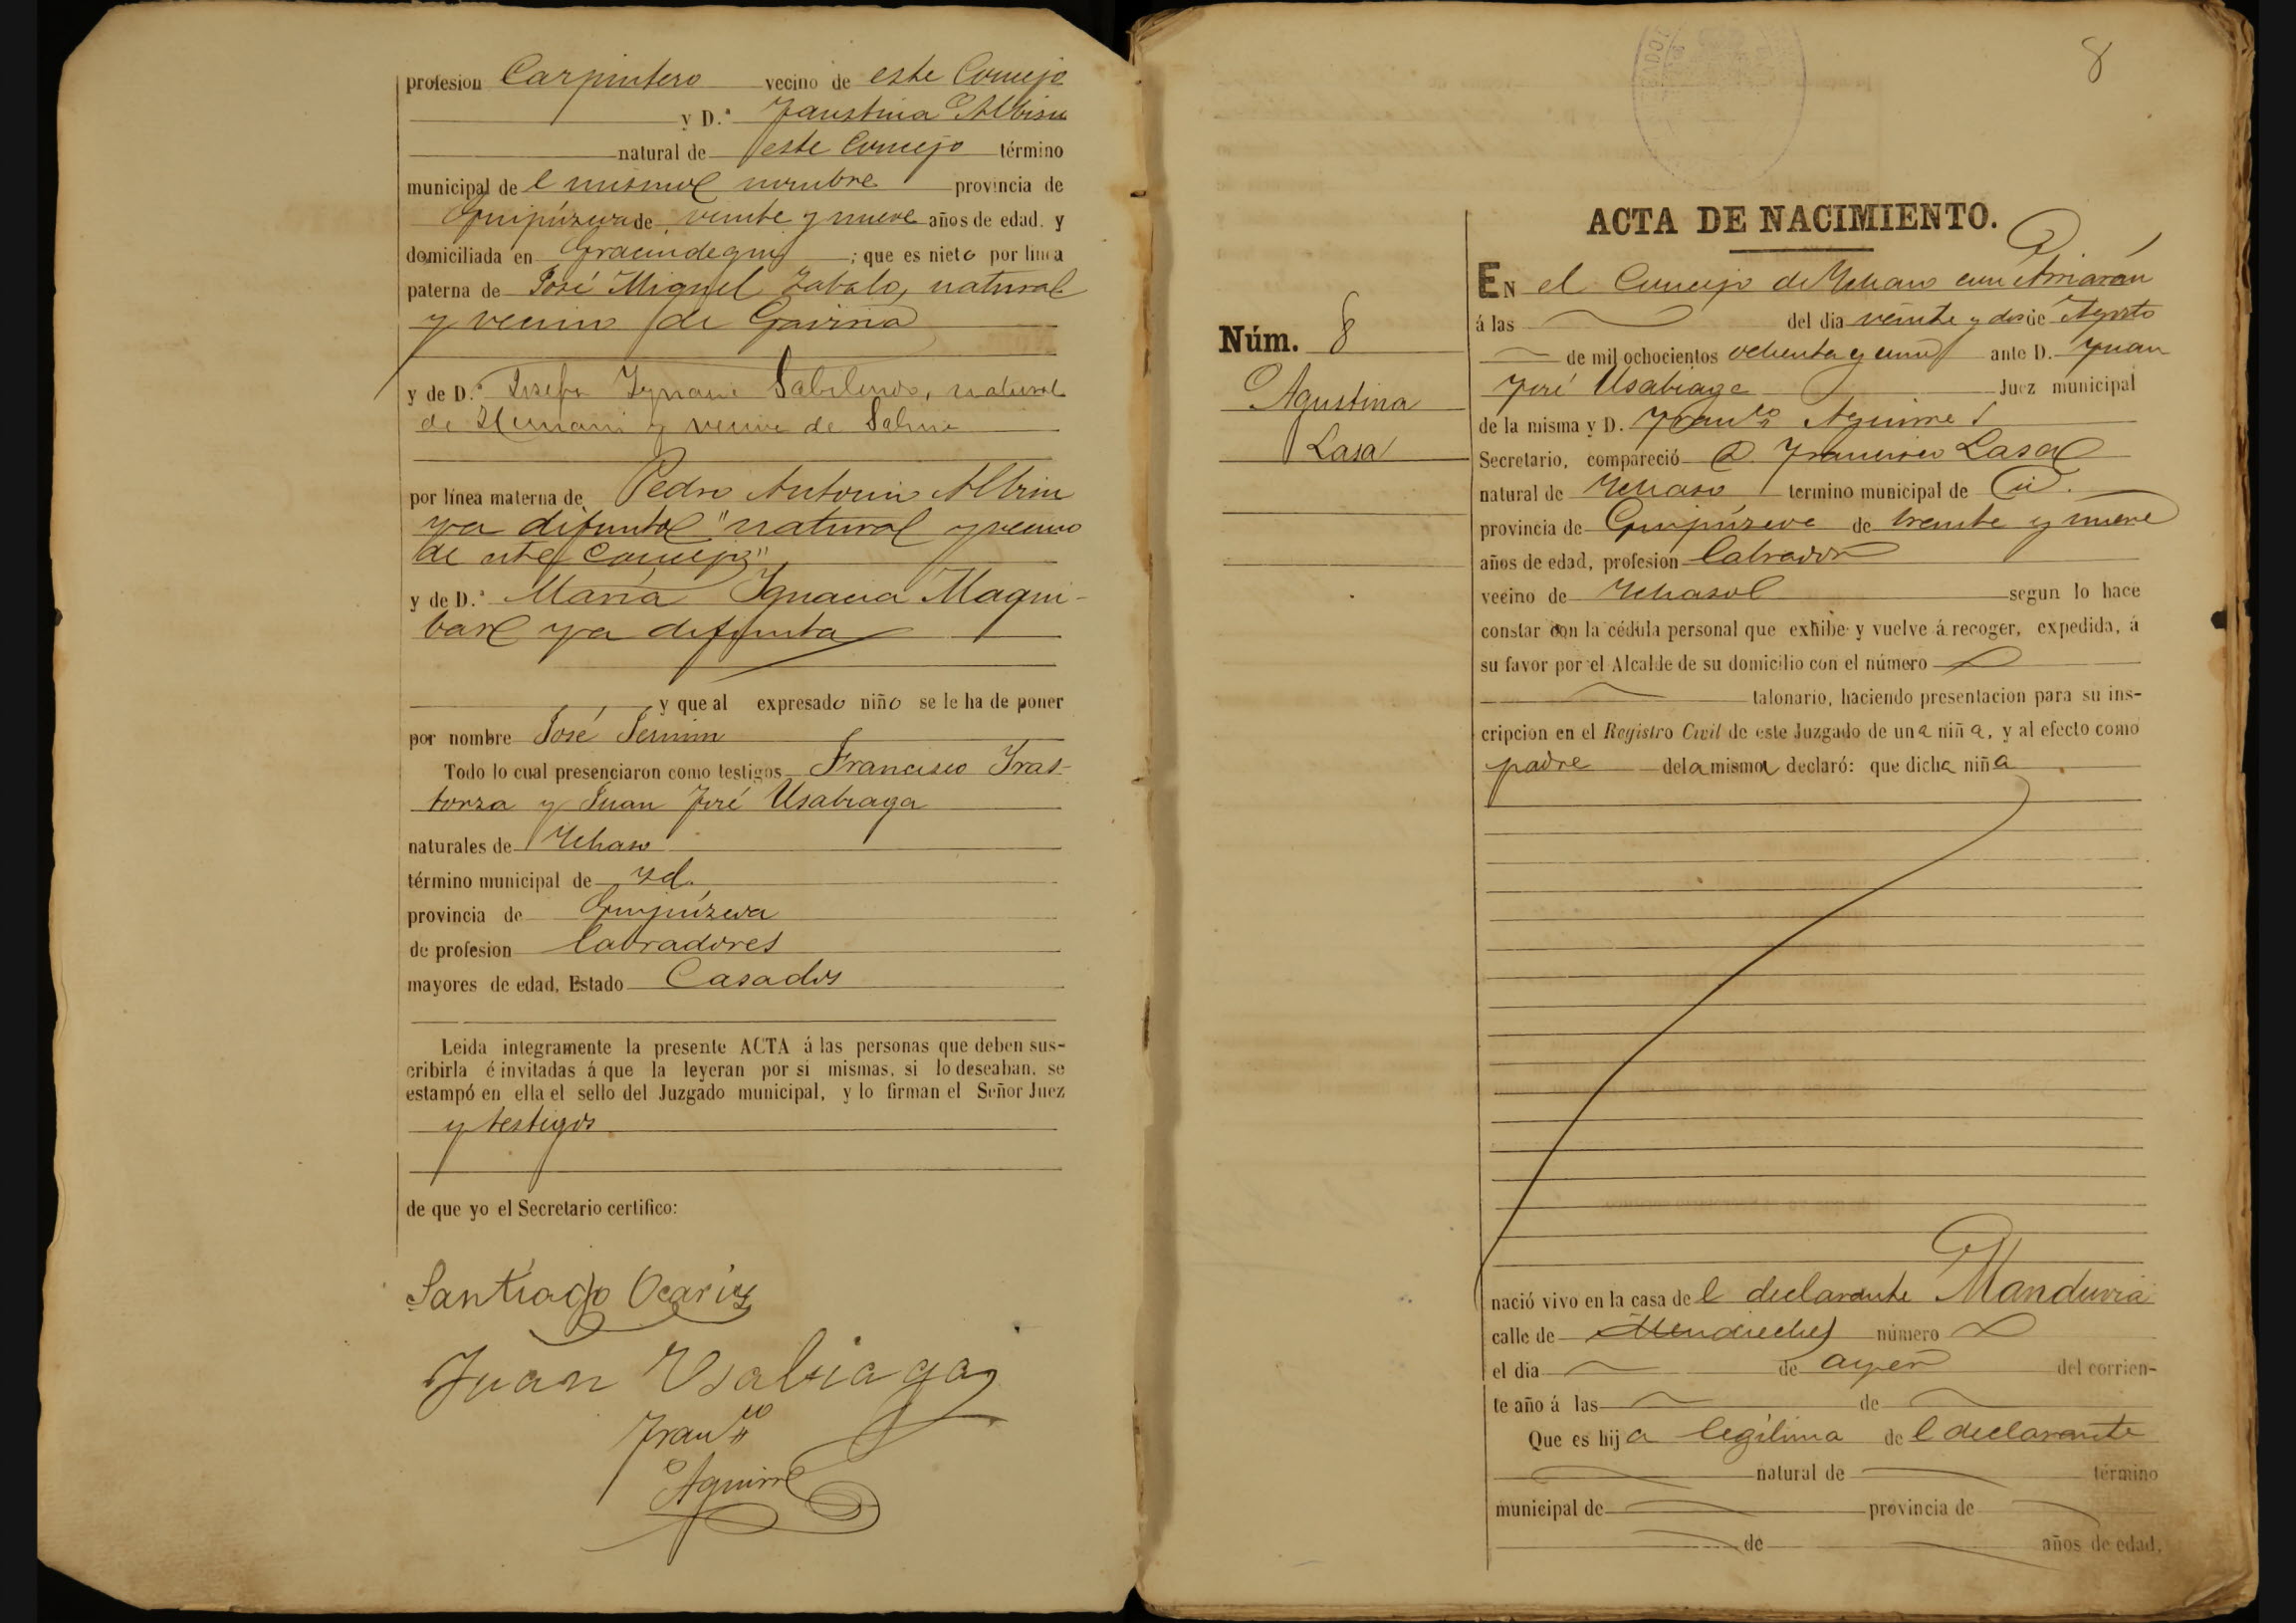 profesion Carpintero vecino de este Concejo
y D.ª Faustina Albisu
natural de este Concejo término
municipal de l mismo nombre provincia de
Guipúzcoa de veinte y nueve años de edad. y
domiciliada en ; que es nieto por línea
paterna de José Miguel Zabalo, natural
y vecino de Gaviria
y de D.ª Josefa Ygnacia natural
de Hernani y vecina de
por línea materna de Pedro Antonio Albisu
ya difunto "natural y vecino
de este Concejo"
y de D.ª María Ygnacia Maqui-
bar ya difunta
y que al expresado niño se le ha de poner
por nombre José Fermin
Todo lo cual presenciaron como testigos Francisco Yras-
torza y Juan José Usabiaga
naturales de Ychaso
término municipal de Yd.
provincia de Guipúzcoa
de profesion labradores
mayores de edad, Estado Casados
Leida integramente la presente ACTA á las personas que deben sus-
cribirla é invitadas á que la leyeran por si mismas, si lo deseaban, se
estampó en ella el sello del Juzgado municipal, y lo firman el Señor Juez
y testigos
de que yo el Secretario certifico:
Santiago Ocariz
Juan Usabiaga
Fran.co
Aguirre
8
ACTA DE NACIMIENTO.
Núm. 8
Agustina
Lasa
EN el Concejo de Ychaso con Arriarán
á las del dia veinte y dos de Agosto
de mil ochocientos ochenta y uno ante D. Juan
José Usabiaga Juez municipal
de la misma y D. Fran.co Aguirre
Secretario, compareció D. Francisco Lasa
natural de Ychaso termino municipal de id.
provincia de Guipúzcoa de treinta y nueve
años de edad, profesion labrador
vecino de Ychaso segun lo hace
constar con la cédula personal que exhibe y vuelve á recoger, expedida, á
su favor por el Alcalde de su domicilio con el número
talonario, haciendo presentacion para su ins-
cripcion en el Registro Civil de este Juzgado de una niña, y al efecto como
padre de la misma declaró: que dicha niña
nació vivo en la casa de l declarante Mandiuvia
calle de número
el dia de ayer del corrien-
te año á las de
Que es hija legítima de l declarante
natural de término
municipal de provincia de
de años de edad,